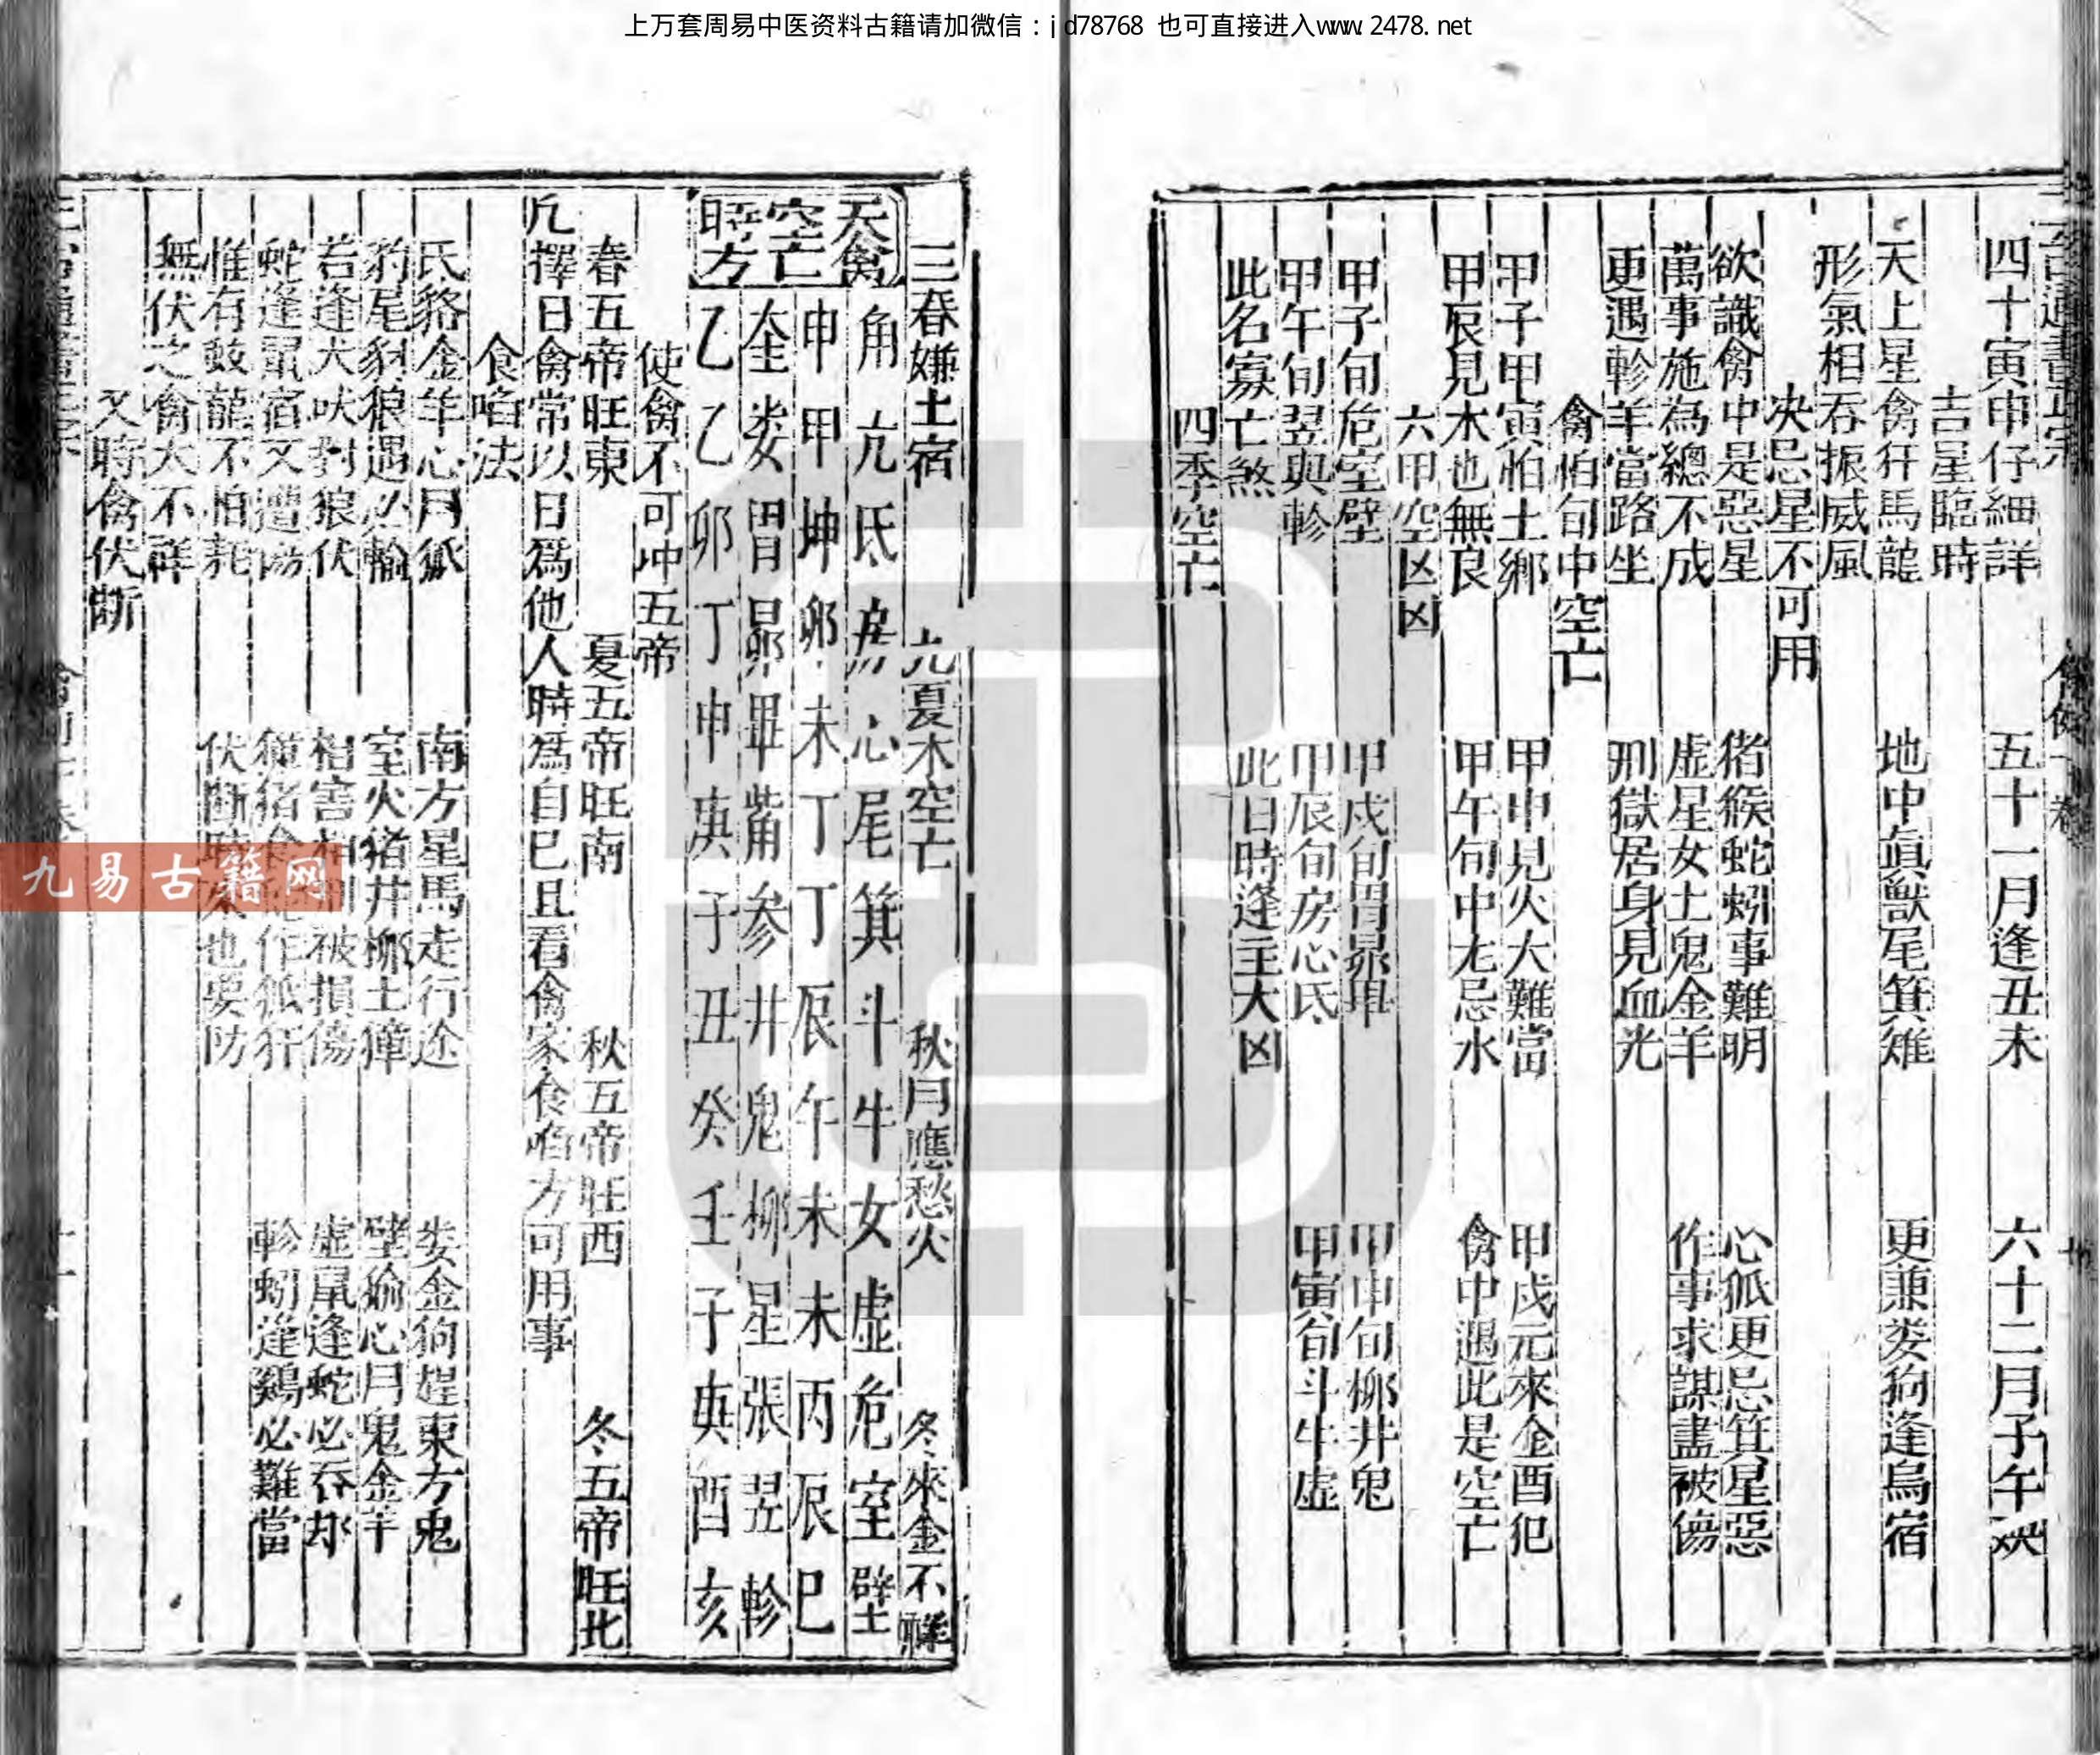 上万套周易中医资料古籍请加微信：jd78768 也可直接进入www.2478.net
四十寅申仔細詳 五十一月逢丑未 六十二月子午
吉星臨時
天上星禽犴馬龍 地中眞獸尾箕雉 更兼娄狗逢烏宿
形氣相吞振威風
决忌星不可用
欲識禽中是惡星 猪猴蛇蚓事難明 心狐更忌箕星惡
萬事施為總不成 虚星女土鬼金羊 作事求謀盡被傷
更遇軫羊當路坐 刑獄居身見血光
禽怕旬中空亡
甲子甲寅怕土鄉 甲申見火大難當 甲戍元來金酉犯
甲辰見木也無良 甲午旬中尢忌水 禽中遇此是空亡
六甲空凶凶
甲子旬危室壁 甲戍旬胃昴畢 甲申旬柳井鬼
甲午旬翌與軫 甲辰旬房心氐 甲寅旬斗牛虚
此名寡亡煞 此日時逢主大凶
四季空亡
三春嫌土宿 九夏木空亡 秋月應愁火 冬來金不祥
天禽空亡時方
角亢氐房心尾箕斗牛女虚危室壁
申甲坤卯未丁丁辰午未未丙辰巳
奎娄胃昴畢觜参井鬼柳星張翌軫
乙乙卯丁申庚子丑癸壬子庚酉亥
使禽不可冲五帝
春五帝旺東 夏五帝旺南 秋五帝旺西 冬五帝旺北
凢擇日禽常以日爲他人時爲自已且看禽家食啗方可用事
食啗法
氐貉金羊心月狐 南方星馬走行途 娄金狗趕東方兎
豹尾豺狼遇必輸 室火猪井柳土獐 壁㺄心月鬼金羊
若逢犬吠對狼伏 相害相 被損傷 虚鼠逢蛇必吞却
蛇逢鼠宿又遭 猪 作狐犴 軫蚓逢鷄必難當
惟有蛟龍不怕 伏斷 也要防
無伏之禽大不祥
又時禽伏斷
九易古籍网